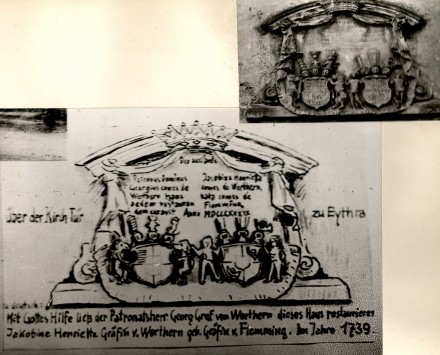 Deo auspice
Patronus Dominus
Georgius comes de
Werthern hanc
aedem restauran
dam curavit
Jacobina Henrietta
comes de Werthern,
nata comes de
Flemming,
Anno MDCCXXXIX
über der Kirch-Tür
zu Eythra
Mit Gottes Hilfe ließ der Patronatsherr Georg Graf von Werthern dieses Haus restaurieren
Jakobine Henriette Gräfin v. Werthern geb. Gräfin v. Flemming. Im Jahre 1739.